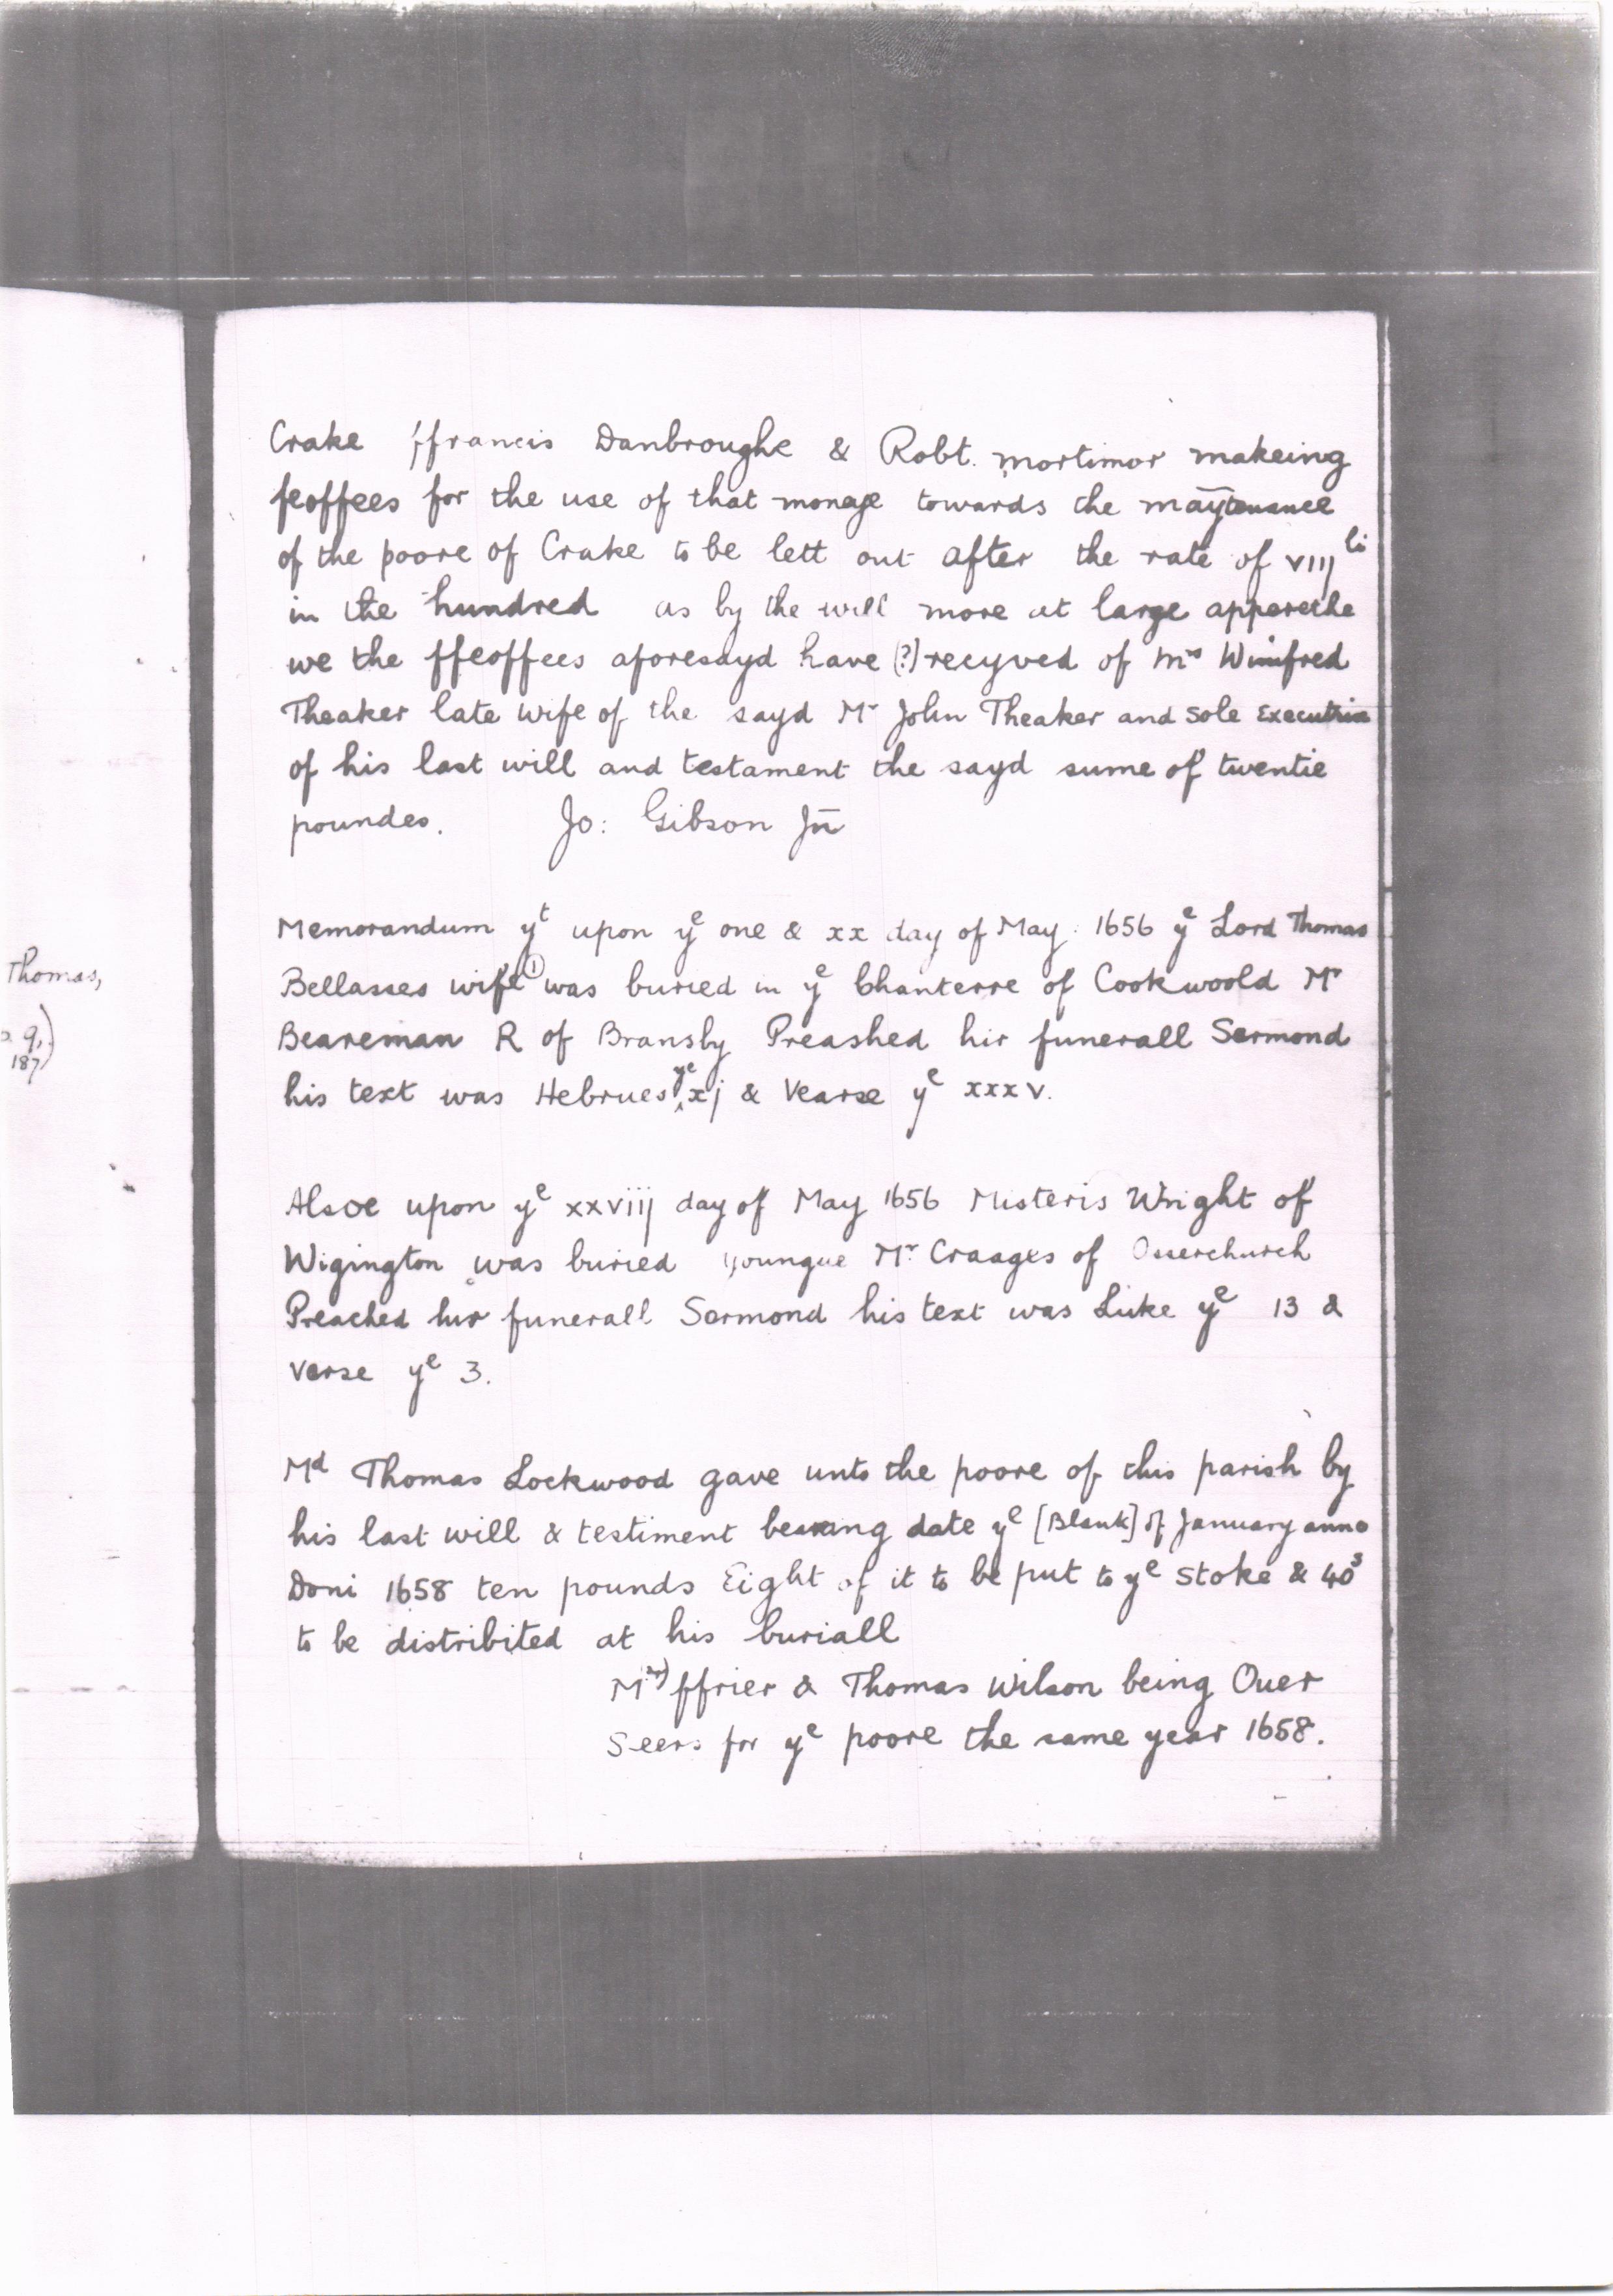 Crake ffrancis Danbroughe & Robt. mortimor makeing
feoffees for the use of that monaye towards the māytenance
of the poore of Crake to be lett out after the rate of viij li
in the hundred as by the will more at large apperethe
we the ffeoffees aforesayd have (?) recyved of Mrs Winifred
Theaker late wife of the sayd Mr John Theaker and sole Executrix
of his last will and testament the sayd sume of twentie
poundes. Jo: Gibson Jn̄
Memorandum yt upon ye one & xx day of May 1656 ye Lord Thomas
Bellasses wife ① was buried in ye Chanterre of Cookwoold Mr
Beareman R of Bransby Preashed hir funerall Sermond
his text was Hebrues ye xj & Vearse ye xxxv.
Alsoe upon ye xxviij day of May 1656 Misteris Wright of
Wigington was buried youngue Mr Craages of Ouerchurch
Preached hir funerall Sermond his text was Luke ye 13 &
verse ye 3.
Md Thomas Lockwood gave unto the poore of this parish by
his last will & testiment bearing date ye [Blank] of January anno
Doni 1658 ten pounds Eight of it to be put to ye stoke & 40s
to be distribited at his buriall
ffrier & Thomas Wilson being Ouer
Seers for ye poore the same year 1658.
Thomas,
9,
187)